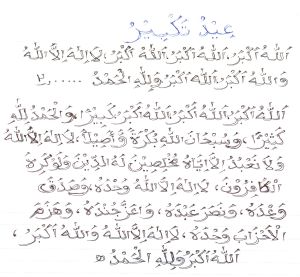 عِيْدْ تَكْبِيْرْ
اَللهُ اَكْبَرُ اَللهُ اَكْبَرُ اَللهُ اَكْبَرُ، لَااِلٰهَ اِلَّااللهُ
وَاللهُ اَكْبَرُ اَللهُ اَكْبَرُ وَلِلّٰهِ الْحَمْدُ ......٢
اَللهُ اَكْبَرُ اَللهُ اَكْبَرُ اَللهُ اَكْبَرُ كَبِيْرًا، وَالْحَمْدُ لِلّٰهِ
كَثِيْرًا، وَسُبْحَانَ اللهِ بُكْرَةً وَاَصِيْلًا، لَااِلٰهَ اِلَّااللهُ
وَلَا نَعْبُدُ اِلَّااِيَّاهُ مُخْلِصِيْنَ لَهُ الدِّيْنَ وَلَوْكَرِهَ
الْكَافِرُوْنَ، لَااِلٰهَ اِلَّااللهُ وَحْدَهُ، وَصَدَقَ
وَعْدَهُ، وَنَصَرَ عَبْدَهُ، وَاَعَزَّجُنْدَهُ، وَهَزَمَ
الْاَحْزَابَ وَحْدَهُ، لَااِلٰهَ اِلَّااللهُ وَاللهُ اَكْبَرُ،
اَللهُ اَكْبَرُ وَلِلّٰهِ الْحَمْدُ